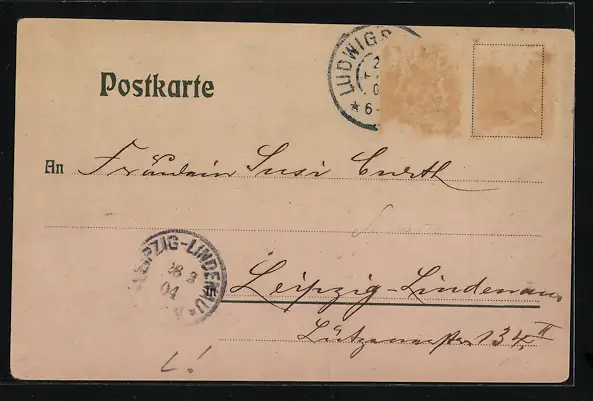 Postkarte
LUDWIGS
6-
An Fräulein Susi Curth
LEIPZIG-LINDENAU
28 3
04
Leipzig-Lindenau
Lütznerstr 134 II
L!